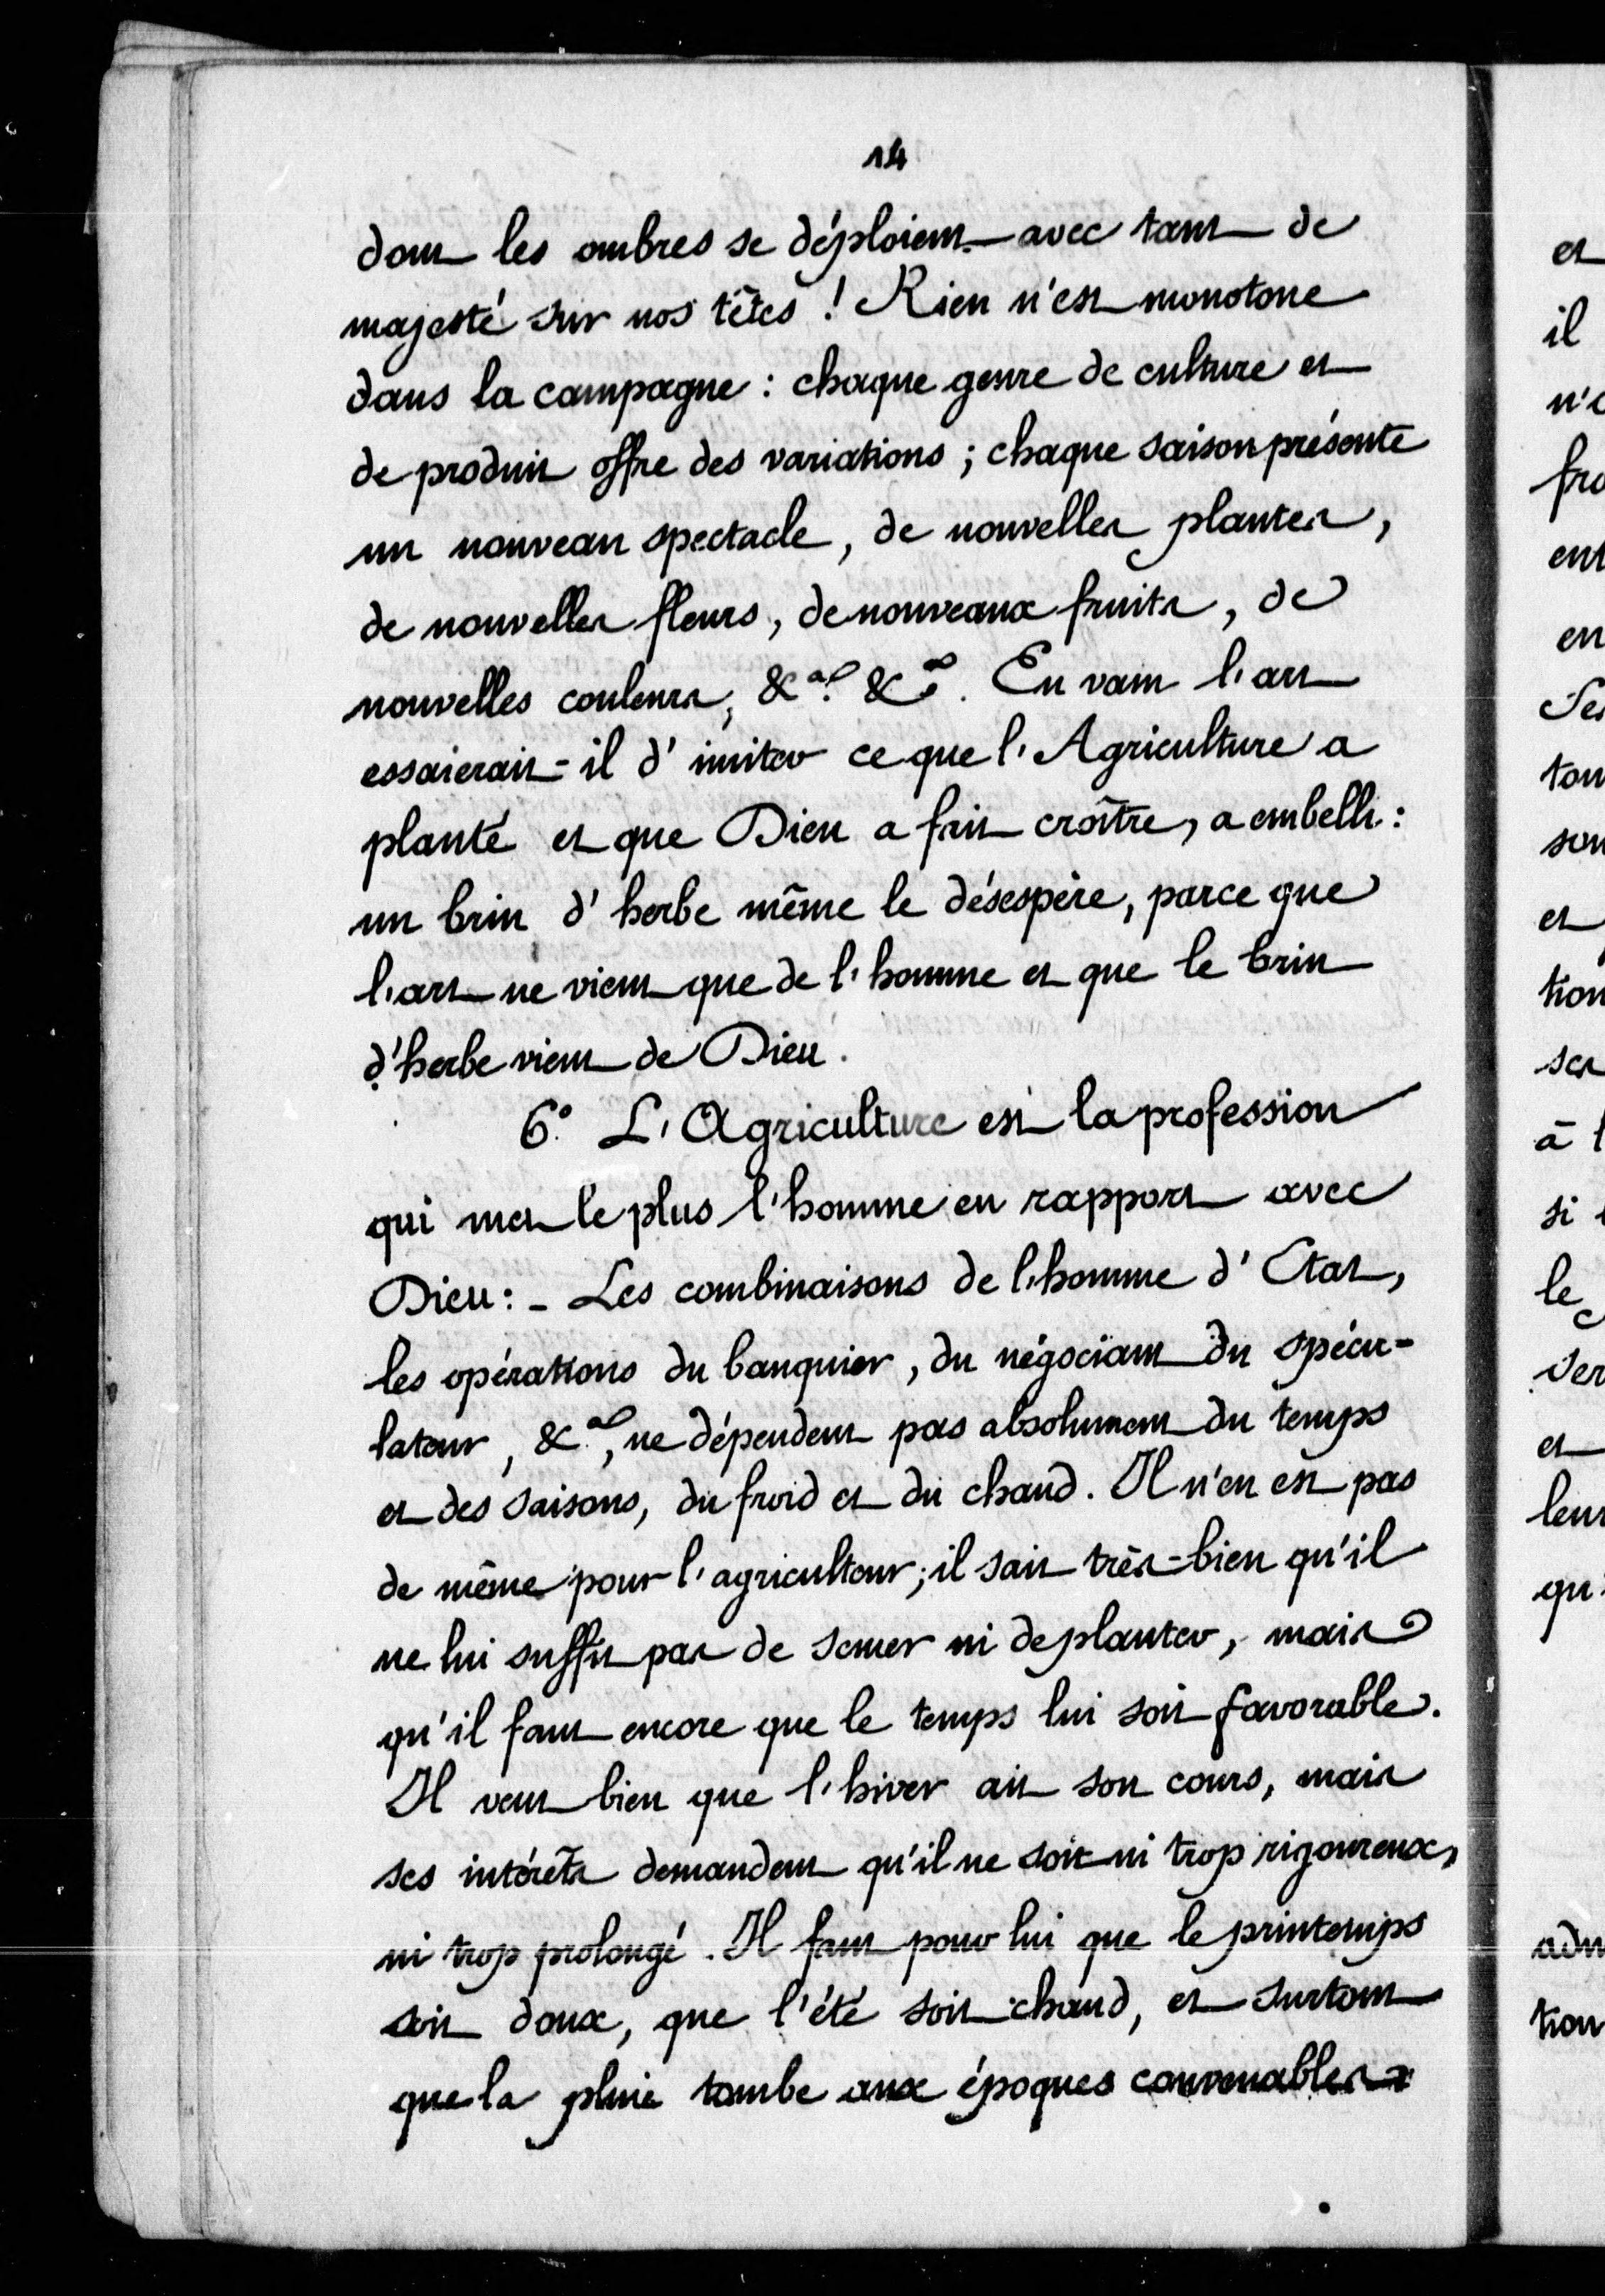 14
dont les ombres se déploient avec tant de
majesté sur nos têtes ! Rien n'est monotone
dans la campagne : chaque genre de culture et
de produit offre des variations ; chaque saison présente
un nouveau spectacle, de nouvelles plantes,
de nouvelles fleurs, de nouveaux fruits, de
nouvelles couleurs, &a. &a. En vain l'art
essaierait-il d'imiter ce que l'Agriculture a
planté et que Dieu a fait croître, a embelli :
un brin d'herbe même le désespère, parce que
l'art ne vient que de l'homme et que le brin
d'herbe vient de Dieu.
6° L'Agriculture est la profession
qui met le plus l'homme en rapport avec
Dieu : - Les combinaisons de l'homme d'Etat,
les opérations du banquier, du négociant du spécu-
lateur, &a, ne dépendent pas absolument du temps
et des saisons, du froid et du chaud. Il n'en est pas
de même pour l'agriculteur ; il sait très-bien qu'il
ne lui suffit pas de semer ni de planter, mais
qu'il faut encore que le temps lui soit favorable.
Il veut bien que l'hiver ait son cours, mais
ses intérêts demandent qu'il ne soit ni trop rigoureux,
ni trop prolongé. Il faut pour lui que le printemps
soit doux, que l'été soit chaud, et surtout
que la pluie tombe aux époques convenables
et
il
n'e
fro
ent
en
Se
tou
son
et
tion
ses
à l
si
le
Ver
et
leur
qu'
adm
tion